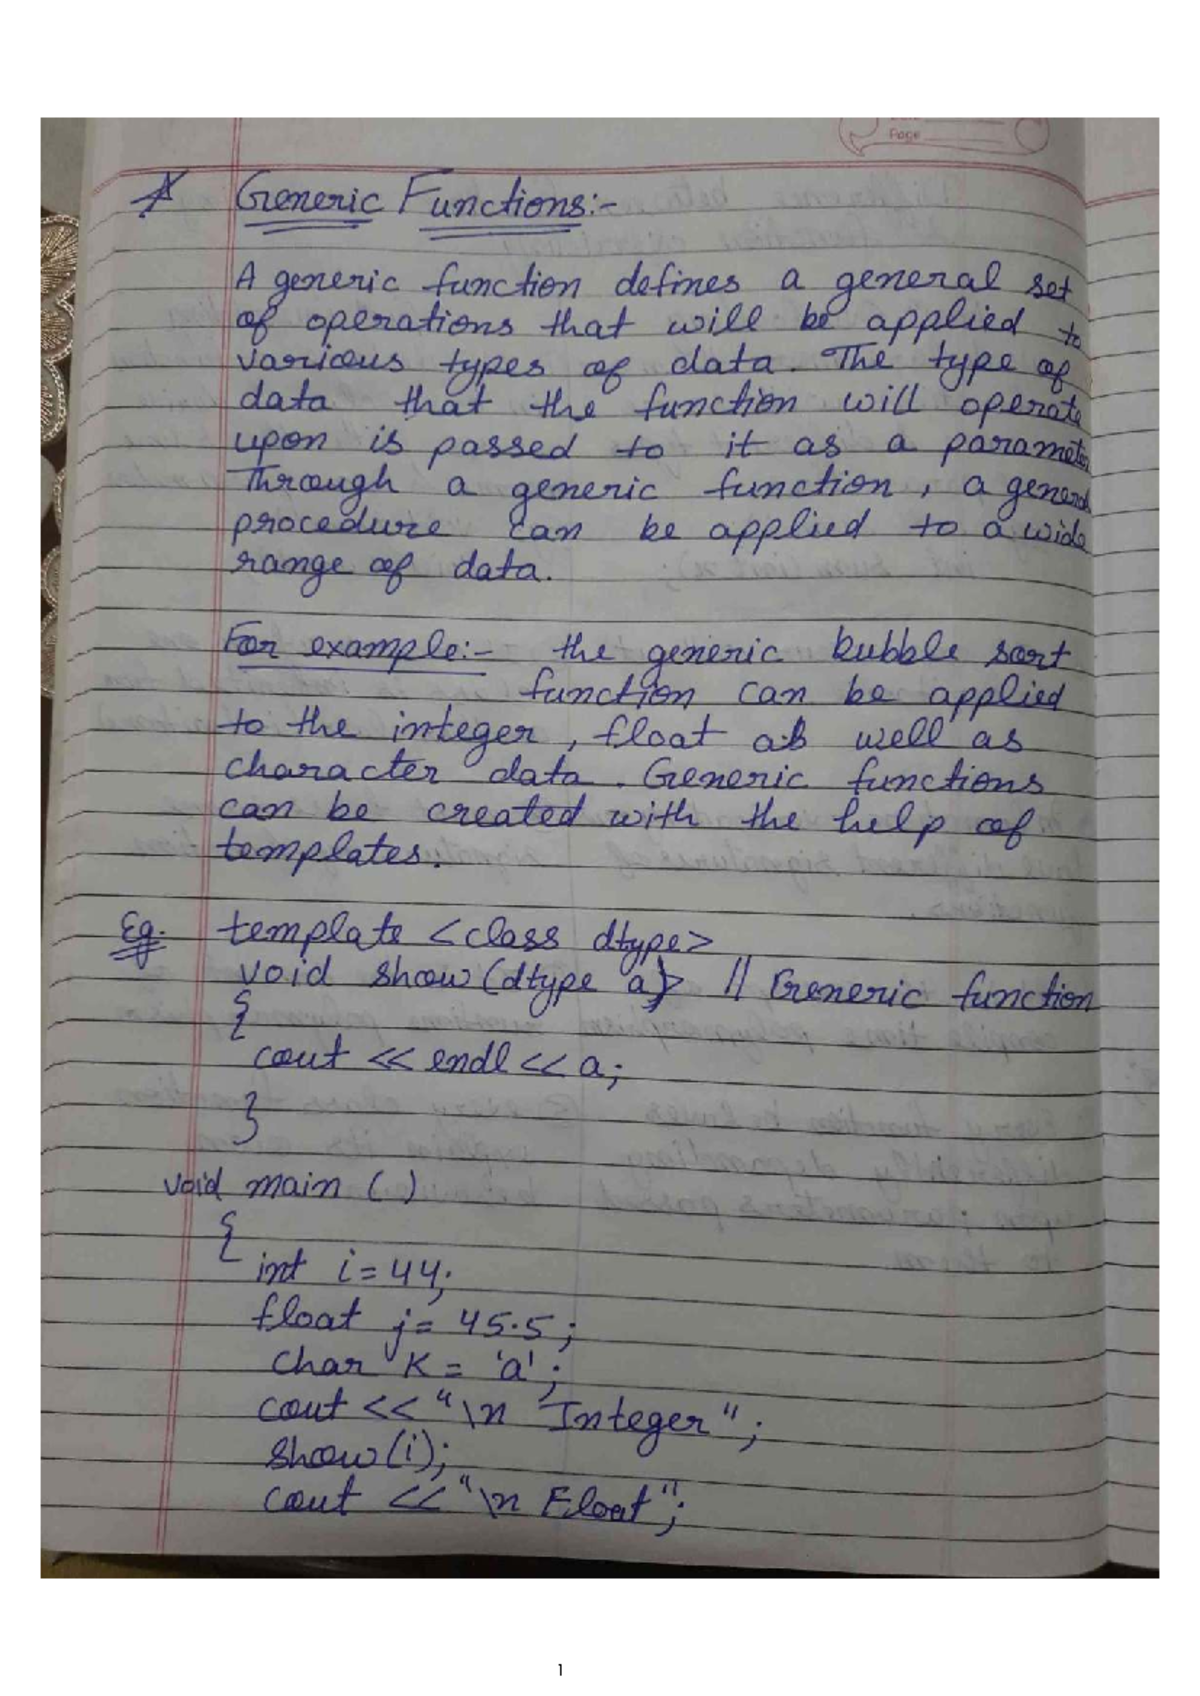 Page
* Generic Functions:-
A generic function defines a general set
of operations that will be applied to
various types of data. The type of
data that the function will operate
upon is passed to it as a parameter
Through a generic function, a general
procedure can be applied to a wide
range of data.
For example:- the generic bubble sort
function can be applied
to the integer, float as well as
character data. Generic functions
can be created with the help of
templates.
Eg. template <class dtype>
void show(dtype a) // Generic function
{
cout << endl << a;
}
void main ( )
{
int i = 44;
float j = 45.5;
char K = 'a';
cout << "\n Integer";
show(i);
cout << "\n Float";
1